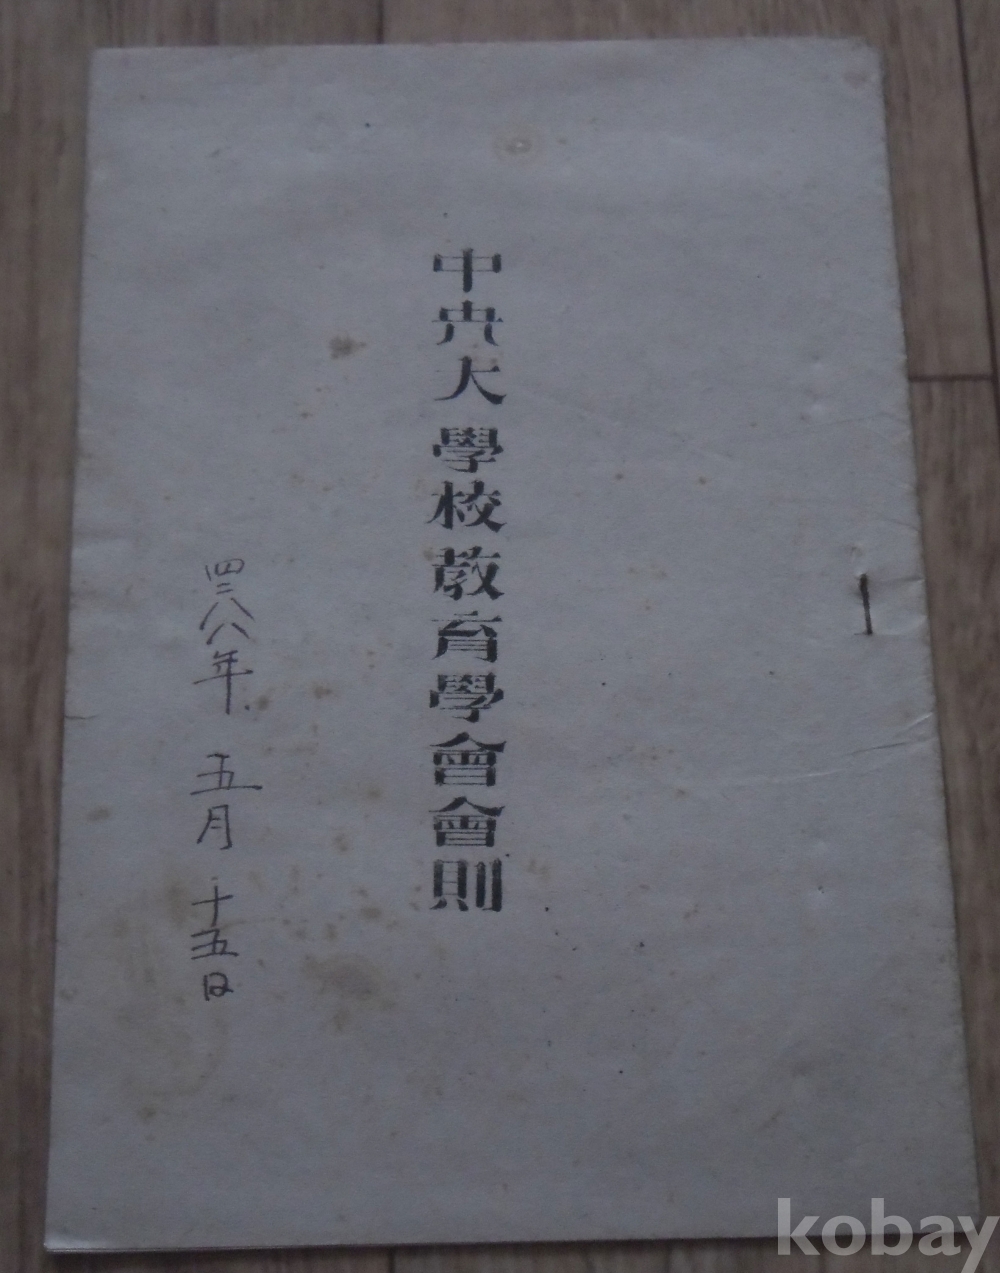 中央大學校敎育學會會則
四二八八年 五月 十五日
kobay